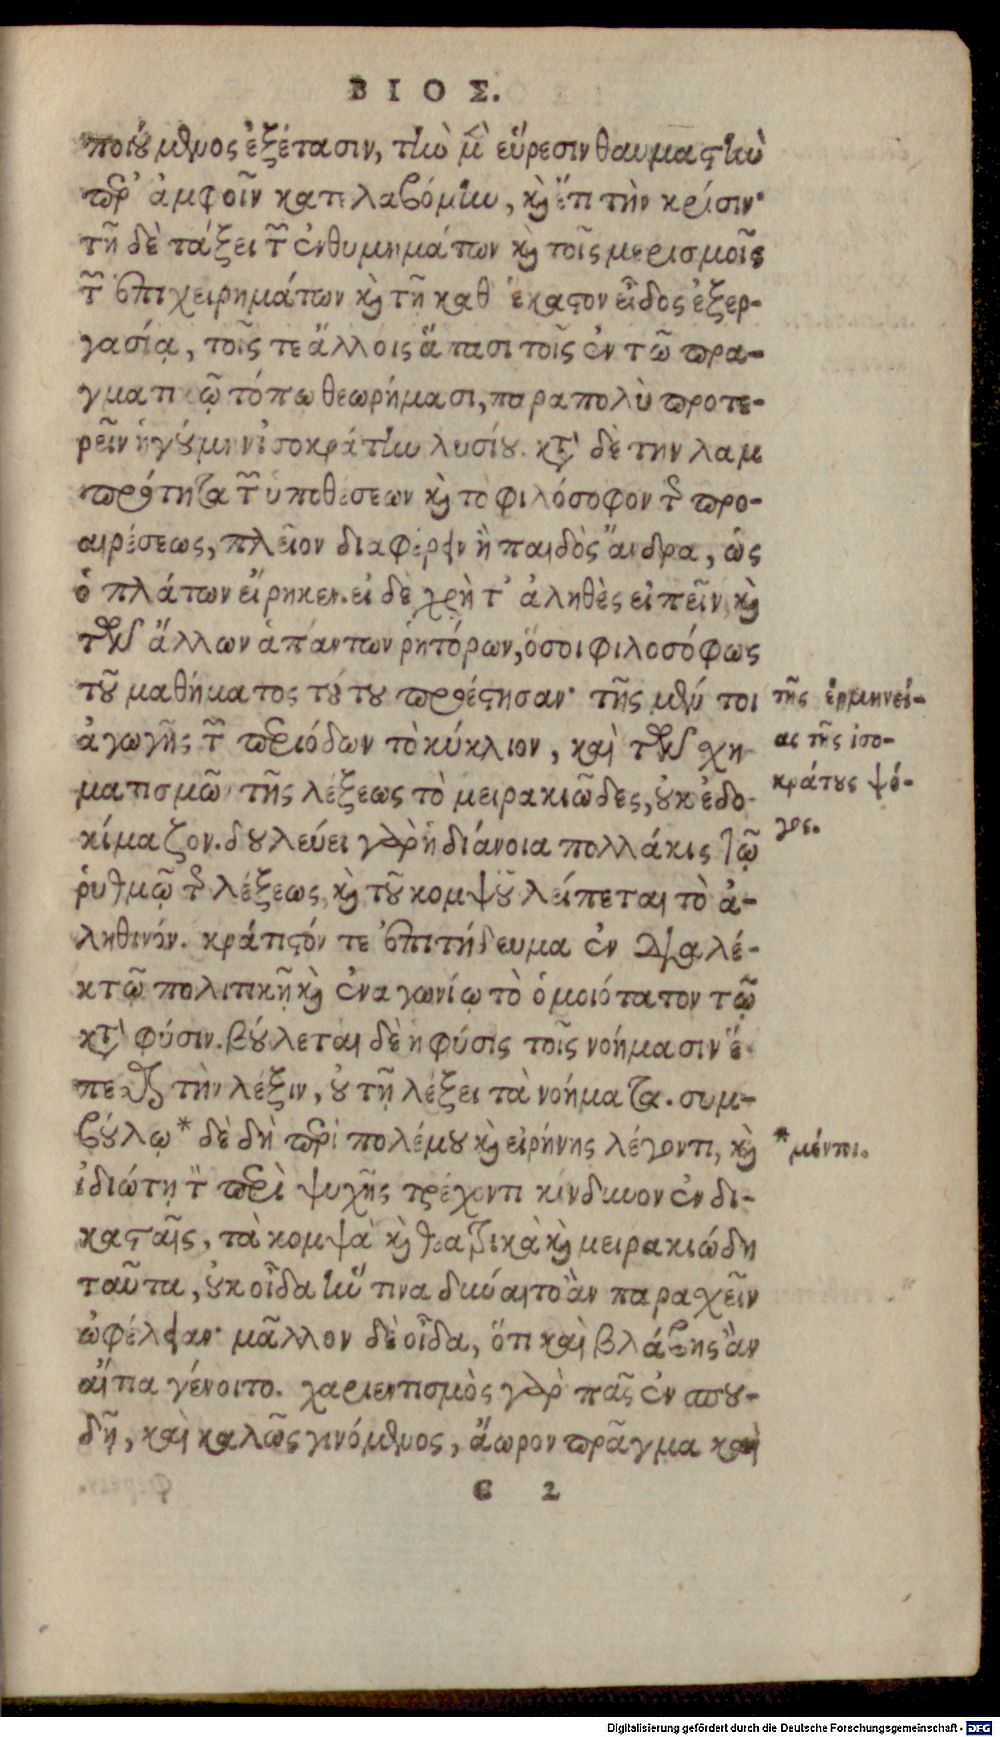 ΒΙΟΣ.
ποιούμενος ἐξέτασιν, τὴν μὲν εὕρεσιν θαυμαστὴν
παρ' ἀμφοῖν κατελαβόμην, καὶ ἔτι τὴν κρίσιν·
τῇ δὲ τάξει τῶν ἐνθυμημάτων καὶ τοῖς μερισμοῖς
τῶν ἐπιχειρημάτων καὶ τῇ καθ' ἕκαστον εἶδος ἐξερ-
γασίᾳ, τοῖς τε ἄλλοις ἅπασι τοῖς ἐν τῷ πρα-
γματικῷ τόπῳ θεωρήμασι, παραπολὺ προτε-
ρεῖν ἡγούμην ἰσοκράτην λυσίου. κατὰ δὲ την λαμ
πρότητα τῶν ὑποθέσεων καὶ τὸ φιλόσοφον τῆς προ-
αιρέσεως, πλεῖον διαφέρειν ἢ παιδὸς ἄνδρα, ὡς
ὁ πλάτων εἴρηκεν. εἰ δὲ χρὴ τ' ἀληθὲς εἰπεῖν, καὶ
τῶν ἄλλων ἁπάντων ῥητόρων, ὅσοι φιλοσόφως
τοῦ μαθήματος τούτου προέστησαν· τῆς μέν τοι
ἀγωγῆς τῶν περιόδων τὸ κύκλιον, καὶ τῶν σχη
ματισμῶν τῆς λέξεως τὸ μειρακιῶδες, οὐκ ἐδο-
κίμαζον. δουλεύει γὰρ ἡ διάνοια πολλάκις τῷ
ῥυθμῷ τῆς λέξεως, καὶ τοῦ κομψοῦ λείπεται τὸ ἀ-
ληθινόν. κράτιστόν τε ἐπιτήδευμα ἐν διαλέ-
κτῳ πολιτικῇ καὶ ἐναγωνίῳ τὸ ὁμοιότατον τῷ
κατὰ φύσιν. βούλεται δὲ ἡ φύσις τοῖς νοήμασιν ἕ-
πεσθαι τὴν λέξιν, οὐ τῇ λέξει τὰ νοήματα. συμ-
βούλῳ* δὲ δὴ περὶ πολέμου καὶ εἰρήνης λέγοντι, καὶ
ἰδιώτῃ τῷ περὶ ψυχῆς τρέχοντι κίνδυνον ἐν δι-
κασταῖς, τὰ κομψὰ καὶ θεατρικὰ καὶ μειρακιώδη
ταῦτα, οὐκ οἶδα ἥν τινα δύναιτο ἂν παρασχεῖν
ὠφέλειαν· μᾶλλον δὲ οἶδα, ὅτι καὶ βλάβης ἂν
αἴτια γένοιτο. χαριεντισμὸς γὰρ πᾶς ἐν σπου-
δῇ, καὶ καλῶς γινόμενος, ἄωρον πρᾶγμα καὶ
τῆς ἑρμηνεί-
ας τῆς ἰσο-
κράτους ψό-
γος.
*μέντοι.
C 2
Digitalisierung gefördert durch die Deutsche Forschungsgemeinschaft - DFG